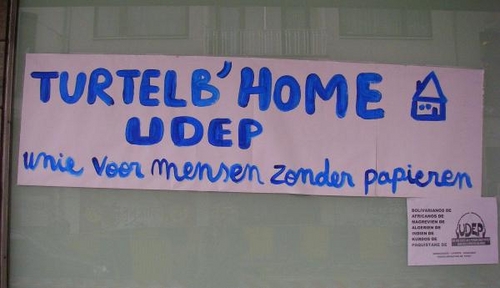 TURTELB'HOME
UDEP
unie voor mensen zonder papieren
BOLIVARIANOS DE
AFRICANOS DE
MAGREVIEN DE
ALGERIEN DE
INDIEN DE
KURDOS DE
PAQUISTANS DE
UDEP